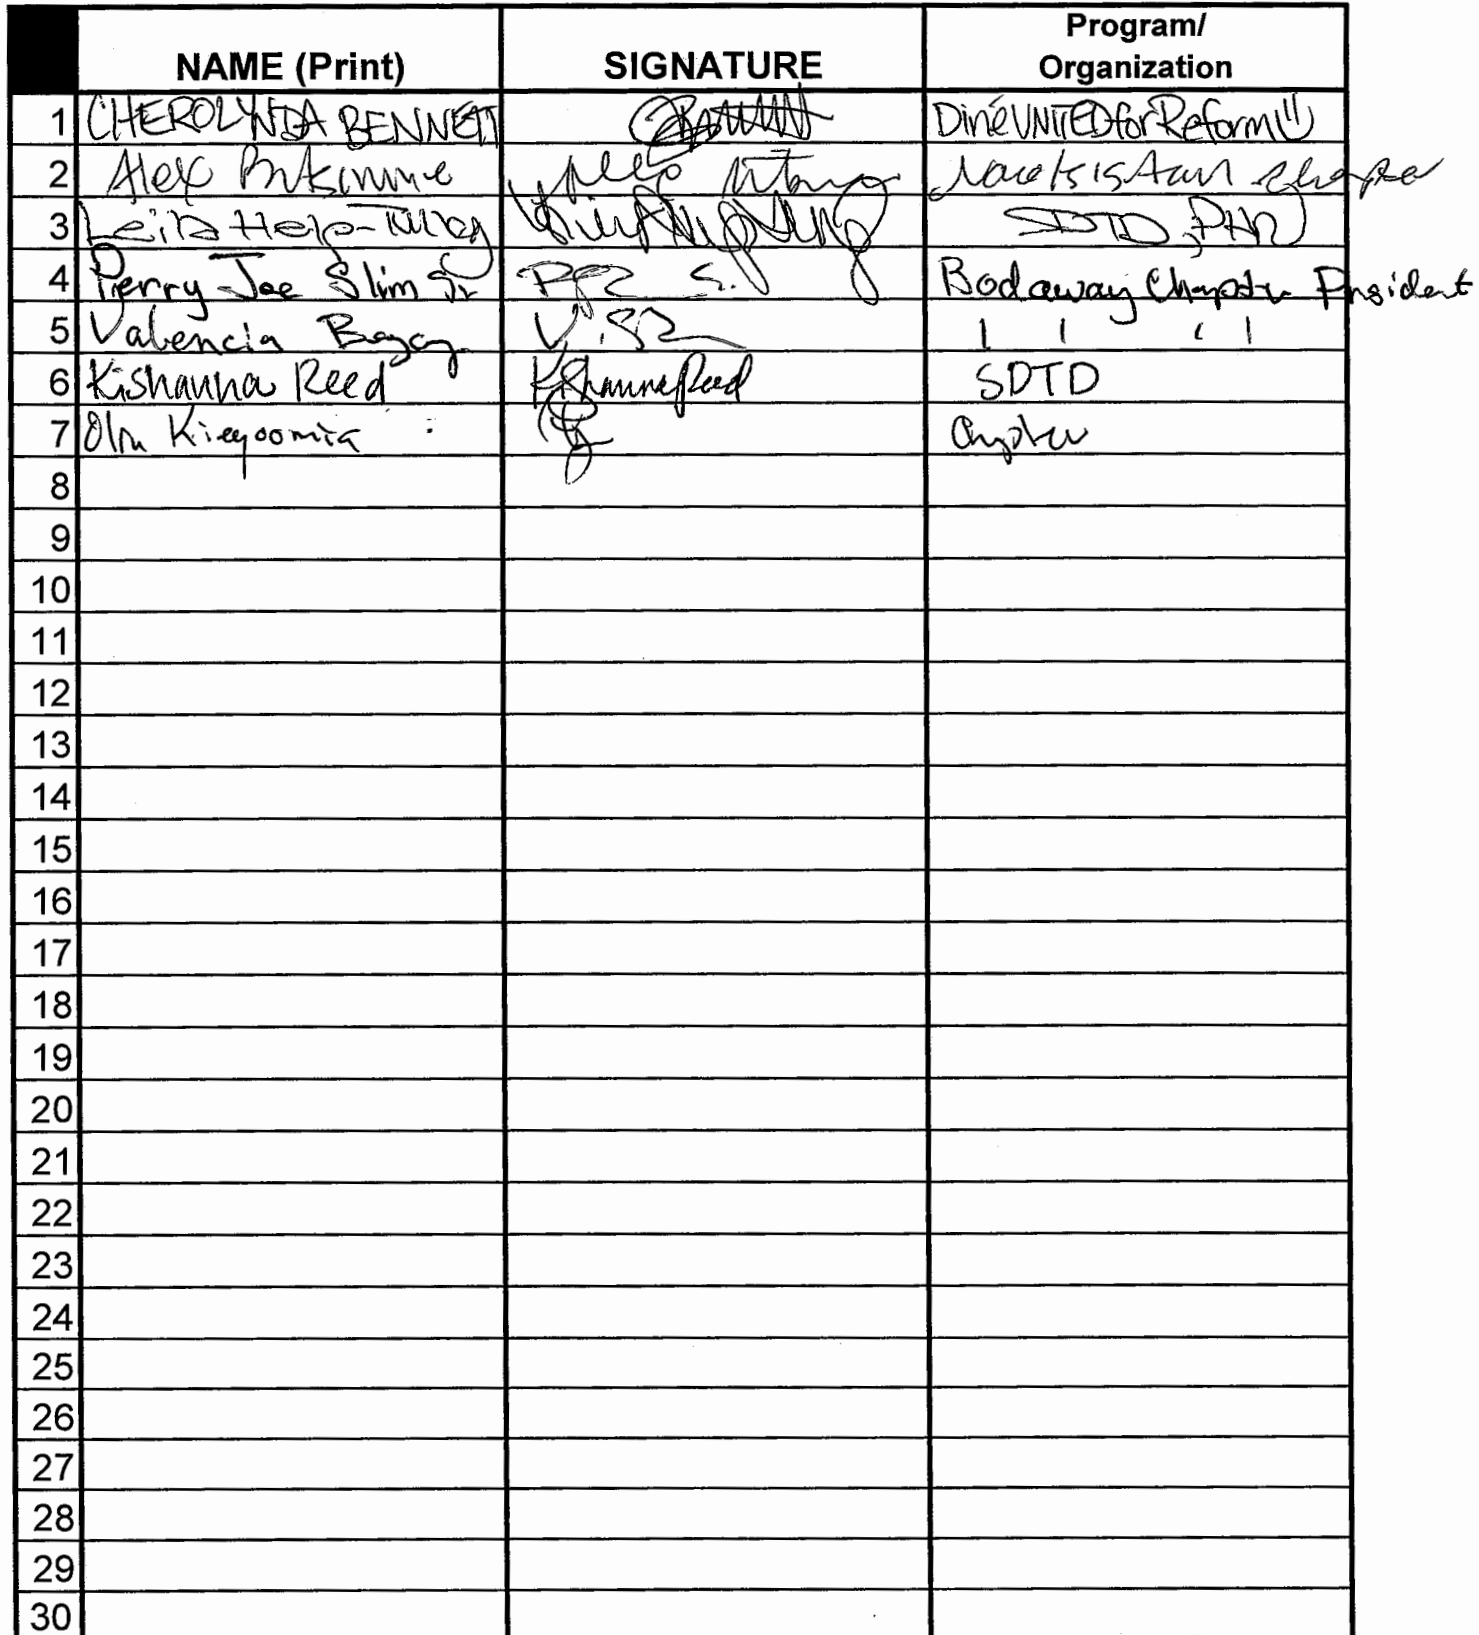 NAME (Print) SIGNATURE Program/ Organization
1 CHEROLYNDA BENNETT DinéUNITEDforReform
2 Alex
3 Leila Help-Tulley SDTD, PHN
4 Perry Joe Slim Sr Bodaway Chapter President
5 Valencia V.
6 Kishanna Reed Kishanna Reed SDTD
7 Chapter
8
9
10
11
12
13
14
15
16
17
18
19
20
21
22
23
24
25
26
27
28
29
30